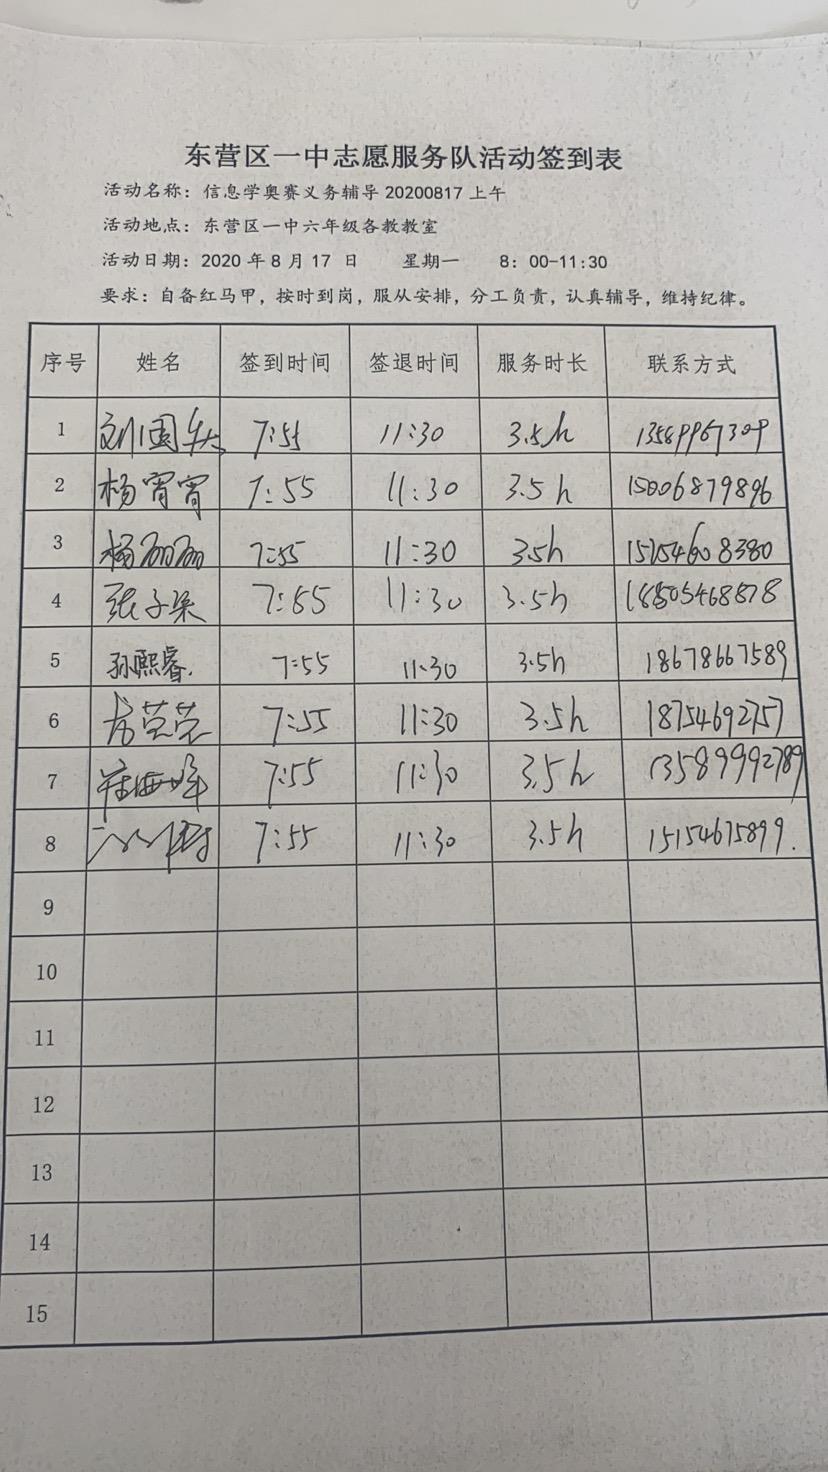 东营区一中志愿服务队活动签到表
活动名称：信息学奥赛义务辅导 20200817 上午
活动地点：东营区一中六年级各教教室
活动日期：2020 年 8 月 17 日 星期一 8：00-11:30
要求：自备红马甲，按时到岗，服从安排，分工负责，认真辅导，维持纪律。
序号 姓名 签到时间 签退时间 服务时长 联系方式
1 7:55 11:30 3.5h 13589967309
2 杨宵宵 7:55 11:30 3.5h 15006879896
3 杨丽丽 7:55 11:30 3.5h 15254608380
4 张子梁 7:55 11:30 3.5h 18805468878
5 孙熙睿 7:55 11:30 3.5h 18678667589
6 7:55 11:30 3.5h 18754692757
7 7:55 11:30 3.5h 13589992789
8 7:55 11:30 3.5h 15154675899.
9
10
11
12
13
14
15